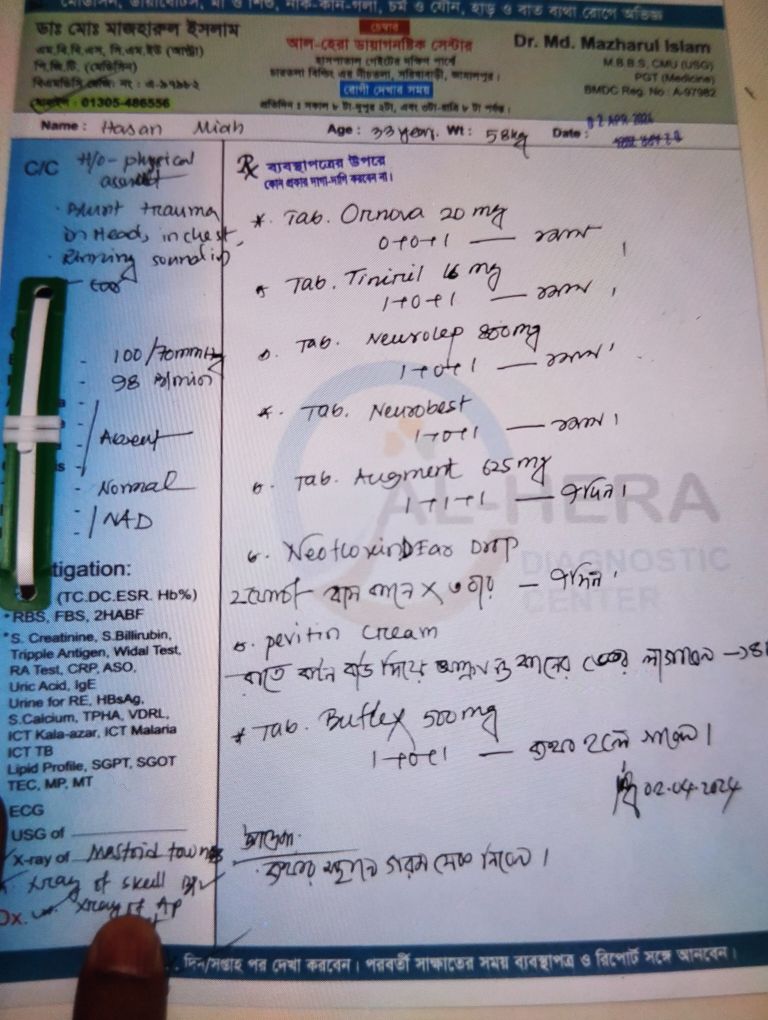 মেডিসিন, ডায়াবেটিস, মা ও শিশু, নাক-কান-গলা, চর্ম ও যৌন, হাড় ও বাত ব্যথা রোগে অভিজ্ঞ
ডাঃ মোঃ মাজহারুল ইসলাম
এম.বি.বি.এস, সি.এম.ইউ (আল্ট্রা)
পি.জি.টি. (মেডিসিন)
বিএমডিসি রেজি: নং : এ-৯৭৯৮২
মোবাইল : 01305-486556
চেম্বার
আল-হেরা ডায়াগনষ্টিক সেন্টার
হাসপাতাল গেইটের দক্ষিণ পার্শ্বে
চারতলা বিল্ডিং এর নীচতলা, সরিষাবাড়ী, জামালপুর।
রোগী দেখার সময়
প্রতিদিন : সকাল ৮ টা-দুপুর ২টা, এবং ৩টা-রাত্রি ৮ টা পর্যন্ত।
Dr. Md. Mazharul Islam
M.B.B.S, CMU (USG)
PGT (Medicine)
BMDC Reg. No : A-97982
Name : Hasan Miah Age : 33 year. Wt : 58kg Date : 02 APR 2024
C/C H/o- physical
assault
. Blunt trauma
in Head, in chest,
. Running sound in
ear
- 100/70mmHg
- 98 B/min
Absent
- Normal
NAD
tigation:
(TC.DC.ESR. Hb%)
RBS, FBS, 2HABF
S. Creatinine, S.Billirubin,
Tripple Antigen, Widal Test,
RA Test, CRP, ASO,
Uric Acid, IgE
Urine for RE, HBsAg,
S.Calcium, TPHA, VDRL,
ICT Kala-azar, ICT Malaria
ICT TB
Lipid Profile, SGPT, SGOT
TEC, MP, MT
ECG
USG of
X-ray of Mastoid towns
Xray of skull
Dx. Xray of AP
Rx ব্যবস্থাপত্রের উপরে
কোন প্রকার দাগা-দাগি করবেন না।
Tab. Ornova 20 mg
0+0+1
Tab. Tiniril 16 mg
1+0+1
Tab. Neurolep 800mg
1+0+1
Tab. Neurobest
1+0+1
Tab. Augment 625 mg
1+1+1 — ৭দিন।
Neofloxin D Ear Drop
২ফোটা বাম কানে X ৩ বার — ৭দিন
pevitin cream
Tab. Buflex 500mg
1+0+1 — ব্যথা হলে খাবেন।
02.04.2024
ব্যথার স্থানে গরম সেক দিবেন।
AL-HERA
DIAGNOSTIC
CENTER
দিন/সপ্তাহ পর দেখা করবেন। পরবর্তী সাক্ষাতের সময় ব্যবস্থাপত্র ও রিপোর্ট সঙ্গে আনবেন।